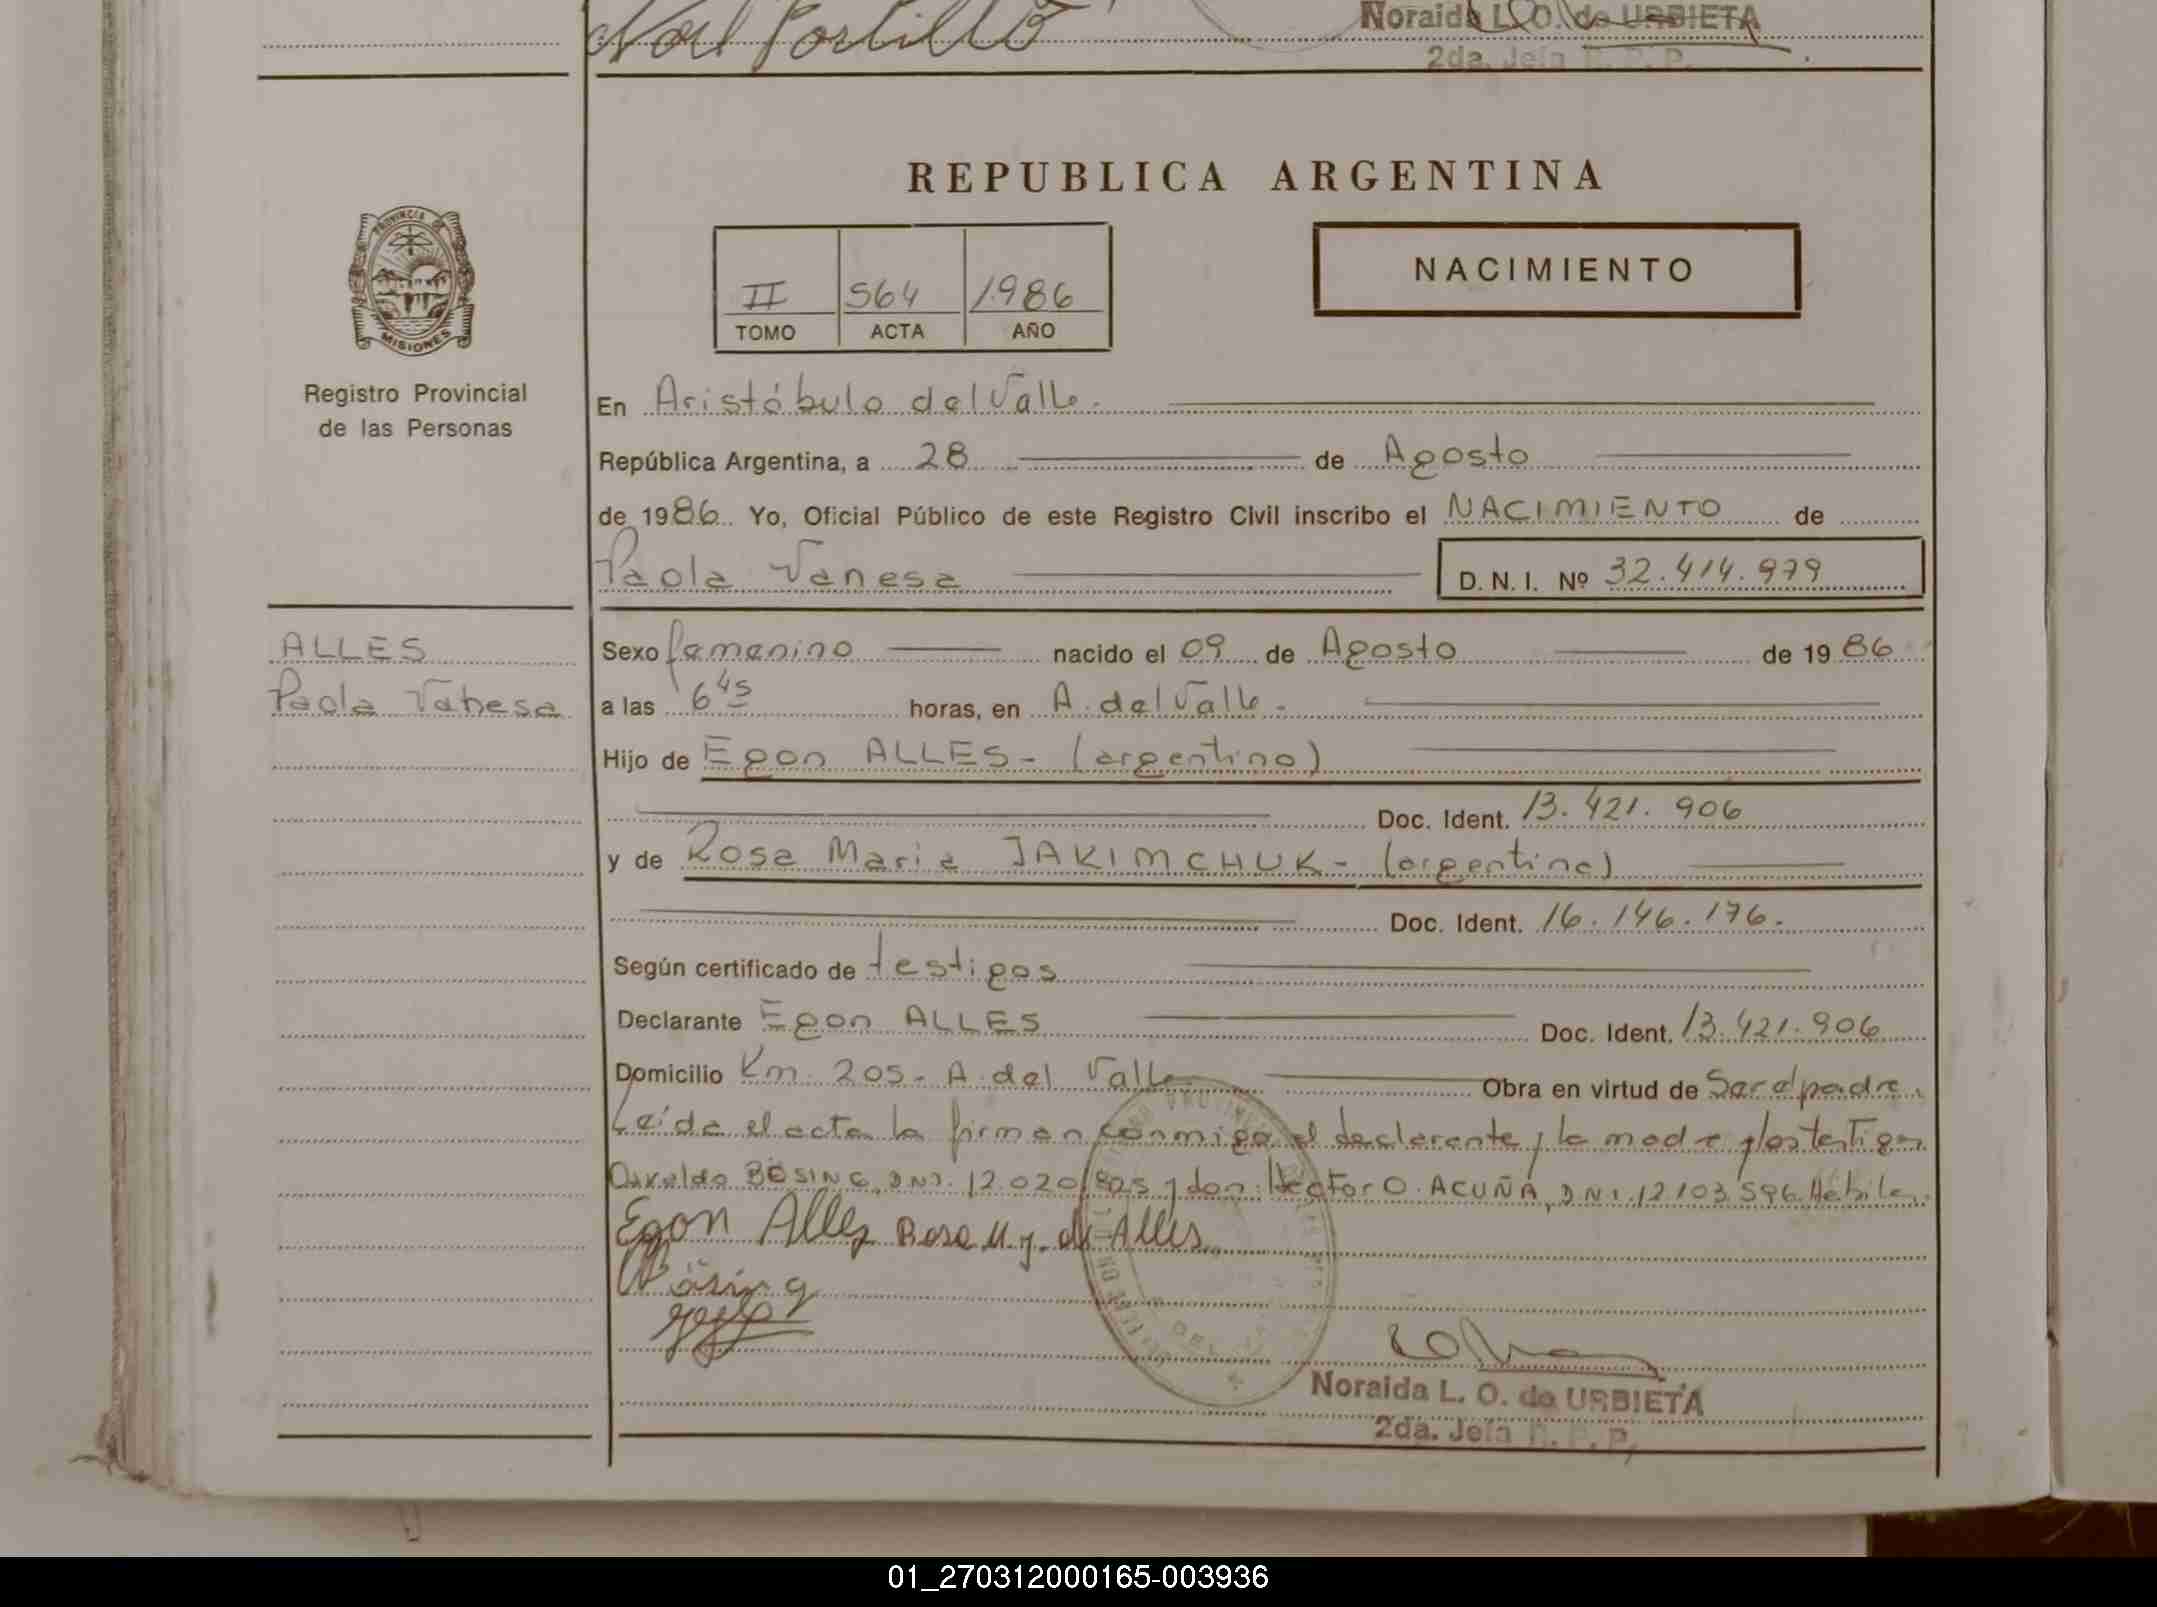 Noel Portillo
Noraida L. O. de URBIETA
2da. Jefa R. P. P.
REPUBLICA ARGENTINA
PROVINCIA DE
MISIONES
Registro Provincial
de las Personas
II 564 1986
TOMO ACTA AÑO
NACIMIENTO
En Aristóbulo del Valle.
República Argentina, a 28 de Agosto
de 1986. Yo, Oficial Público de este Registro Civil inscribo el NACIMIENTO de
Paola Vanesa D. N. I. Nº 32.414.979
ALLES
Paola Vanesa
Sexo femenino nacido el 09 de Agosto de 1986
a las 6 45 horas, en A. del Valle.
Hijo de Egon ALLES - (argentino)
Doc. Ident. 13.421.906
y de Rosa Maria JAKIMCHUK - (argentina)
Doc. Ident. 16.146.176.
Según certificado de testigos
Declarante Egon ALLES Doc. Ident. 13.421.906
Domicilio Km. 205 - A. del Valle Obra en virtud de Ser el padre.
Leída el acta la firman conmigo el declarante, la madre y los testigos
Osvaldo BÖSING, DNI. 12.020.805 y don Héctor O. ACUÑA, DNI. 12.103.596. Hábiles.
Egon Alles Rosa M. J. de Alles
Bösing
Noraida L. O. de URBIETA
2da. Jefa R. P. P.
01_270312000165-003936